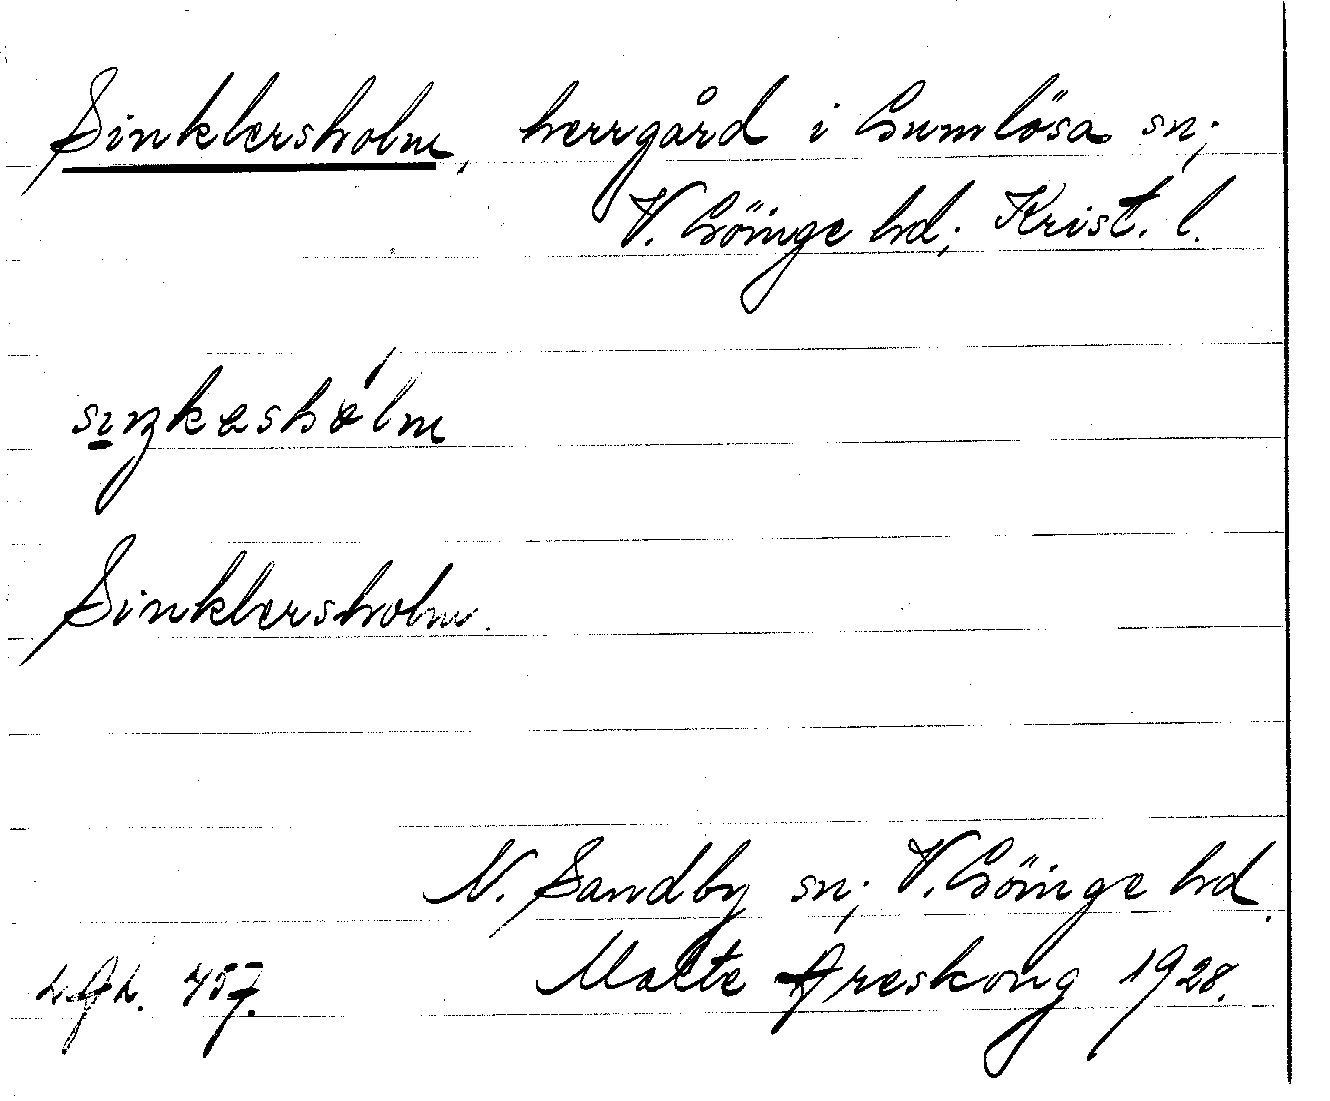 Sinklersholm, herrgård i Gumlösa sn;
V. Göinge hd; Krist. l.
Sinklersholm.
N. Sandby sn; V. Göinge hd.
Malte Areskoug 1928.
457.